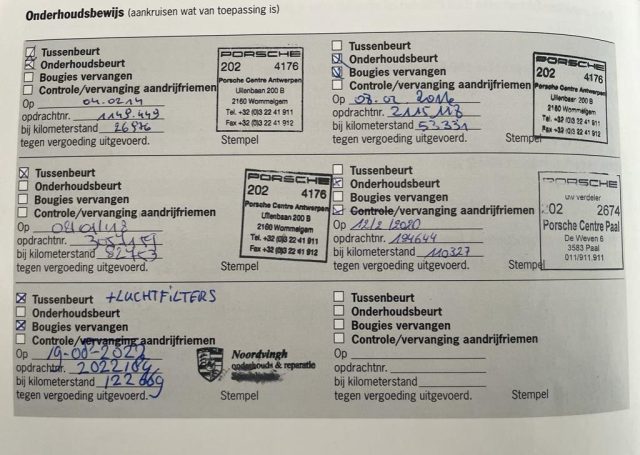 Onderhoudsbewijs (aankruisen wat van toepassing is)
Tussenbeurt
Onderhoudsbeurt
Bougies vervangen
Controle/vervanging aandrijfriemen
Op 04.02.14
opdrachtnr. 1149.449
bij kilometerstand 26976
tegen vergoeding uitgevoerd.
PORSCHE
202 4176
Porsche Centre Antwerpen
Uilenbaan 200 B
2160 Wommelgem
Tel. +32 (0)3 22 41 911
Fax +32 (0)3 22 41 912
Stempel
Tussenbeurt
Onderhoudsbeurt
Bougies vervangen
Controle/vervanging aandrijfriemen
Op 2016
opdrachtnr.
bij kilometerstand 53331
tegen vergoeding uitgevoerd.
PORSCHE
202 4176
Porsche Centre Antwerpen
Uilenbaan 200 B
2160 Wommelgem
Tel. +32 (0)3 22 41 911
Fax +32 (0)3 22 41 912
Stempel
Tussenbeurt
Onderhoudsbeurt
Bougies vervangen
Controle/vervanging aandrijfriemen
Op
opdrachtnr.
bij kilometerstand 82453
tegen vergoeding uitgevoerd.
PORSCHE
202 4176
Porsche Centre Antwerpen
Uilenbaan 200 B
2160 Wommelgem
Tel. +32 (0)3 22 41 911
Fax +32 (0)3 22 41 912
Stempel
Tussenbeurt
Onderhoudsbeurt
Bougies vervangen
Controle/vervanging aandrijfriemen
Op 12/2/2020
opdrachtnr. 194644
bij kilometerstand 110327
tegen vergoeding uitgevoerd.
PORSCHE
uw verdeler
202 2674
Porsche Centre Paal
De Weven 6
3583 Paal
011/911.911
Stempel
Tussenbeurt +LUCHTFILTERS
Onderhoudsbeurt
Bougies vervangen
Controle/vervanging aandrijfriemen
Op
opdrachtnr.
bij kilometerstand
tegen vergoeding uitgevoerd.
Noordvingh
onderhouds & reparatie
Stempel
Tussenbeurt
Onderhoudsbeurt
Bougies vervangen
Controle/vervanging aandrijfriemen
Op
opdrachtnr.
bij kilometerstand
tegen vergoeding uitgevoerd.
Stempel